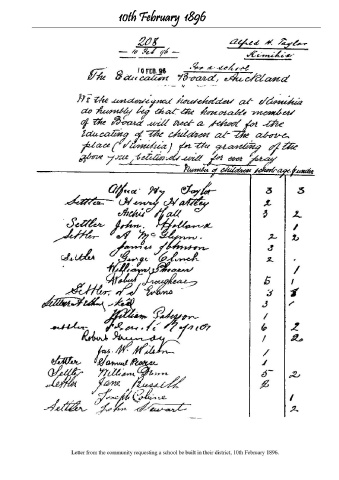 10th February 1896
208
10 Feb 96
Alfred H. Taylor
Kimihia
10 FEB 96
For a school
The Education Board, Auckland
We the undersigned householders at Kimihia
do humbly beg that the honorable members
of the Board will erect a school for the
Educating of the children at the above
place (Kimihia) for the granting of the
above your petitioners will for ever pray
Number of children school age & under
Alfred Hy Taylor 3 3
Settler Henry Hartley 2
Hall 3 2
Settler John Holland 1
Settler A McGlynn 2 2
James Johnson 3
Settler George Clinch 2
William 1
Robert 5 1
Settler Evans 3
Settler 3
William 1
6 2
Robert 1 2
Jas. W. Wilson 1
Settler Samuel Pearce
William 5 2
Settler Jane 2
Joseph 1
Settler John Stewart 2
Letter from the community requesting a school be built in their district, 10th February 1896.